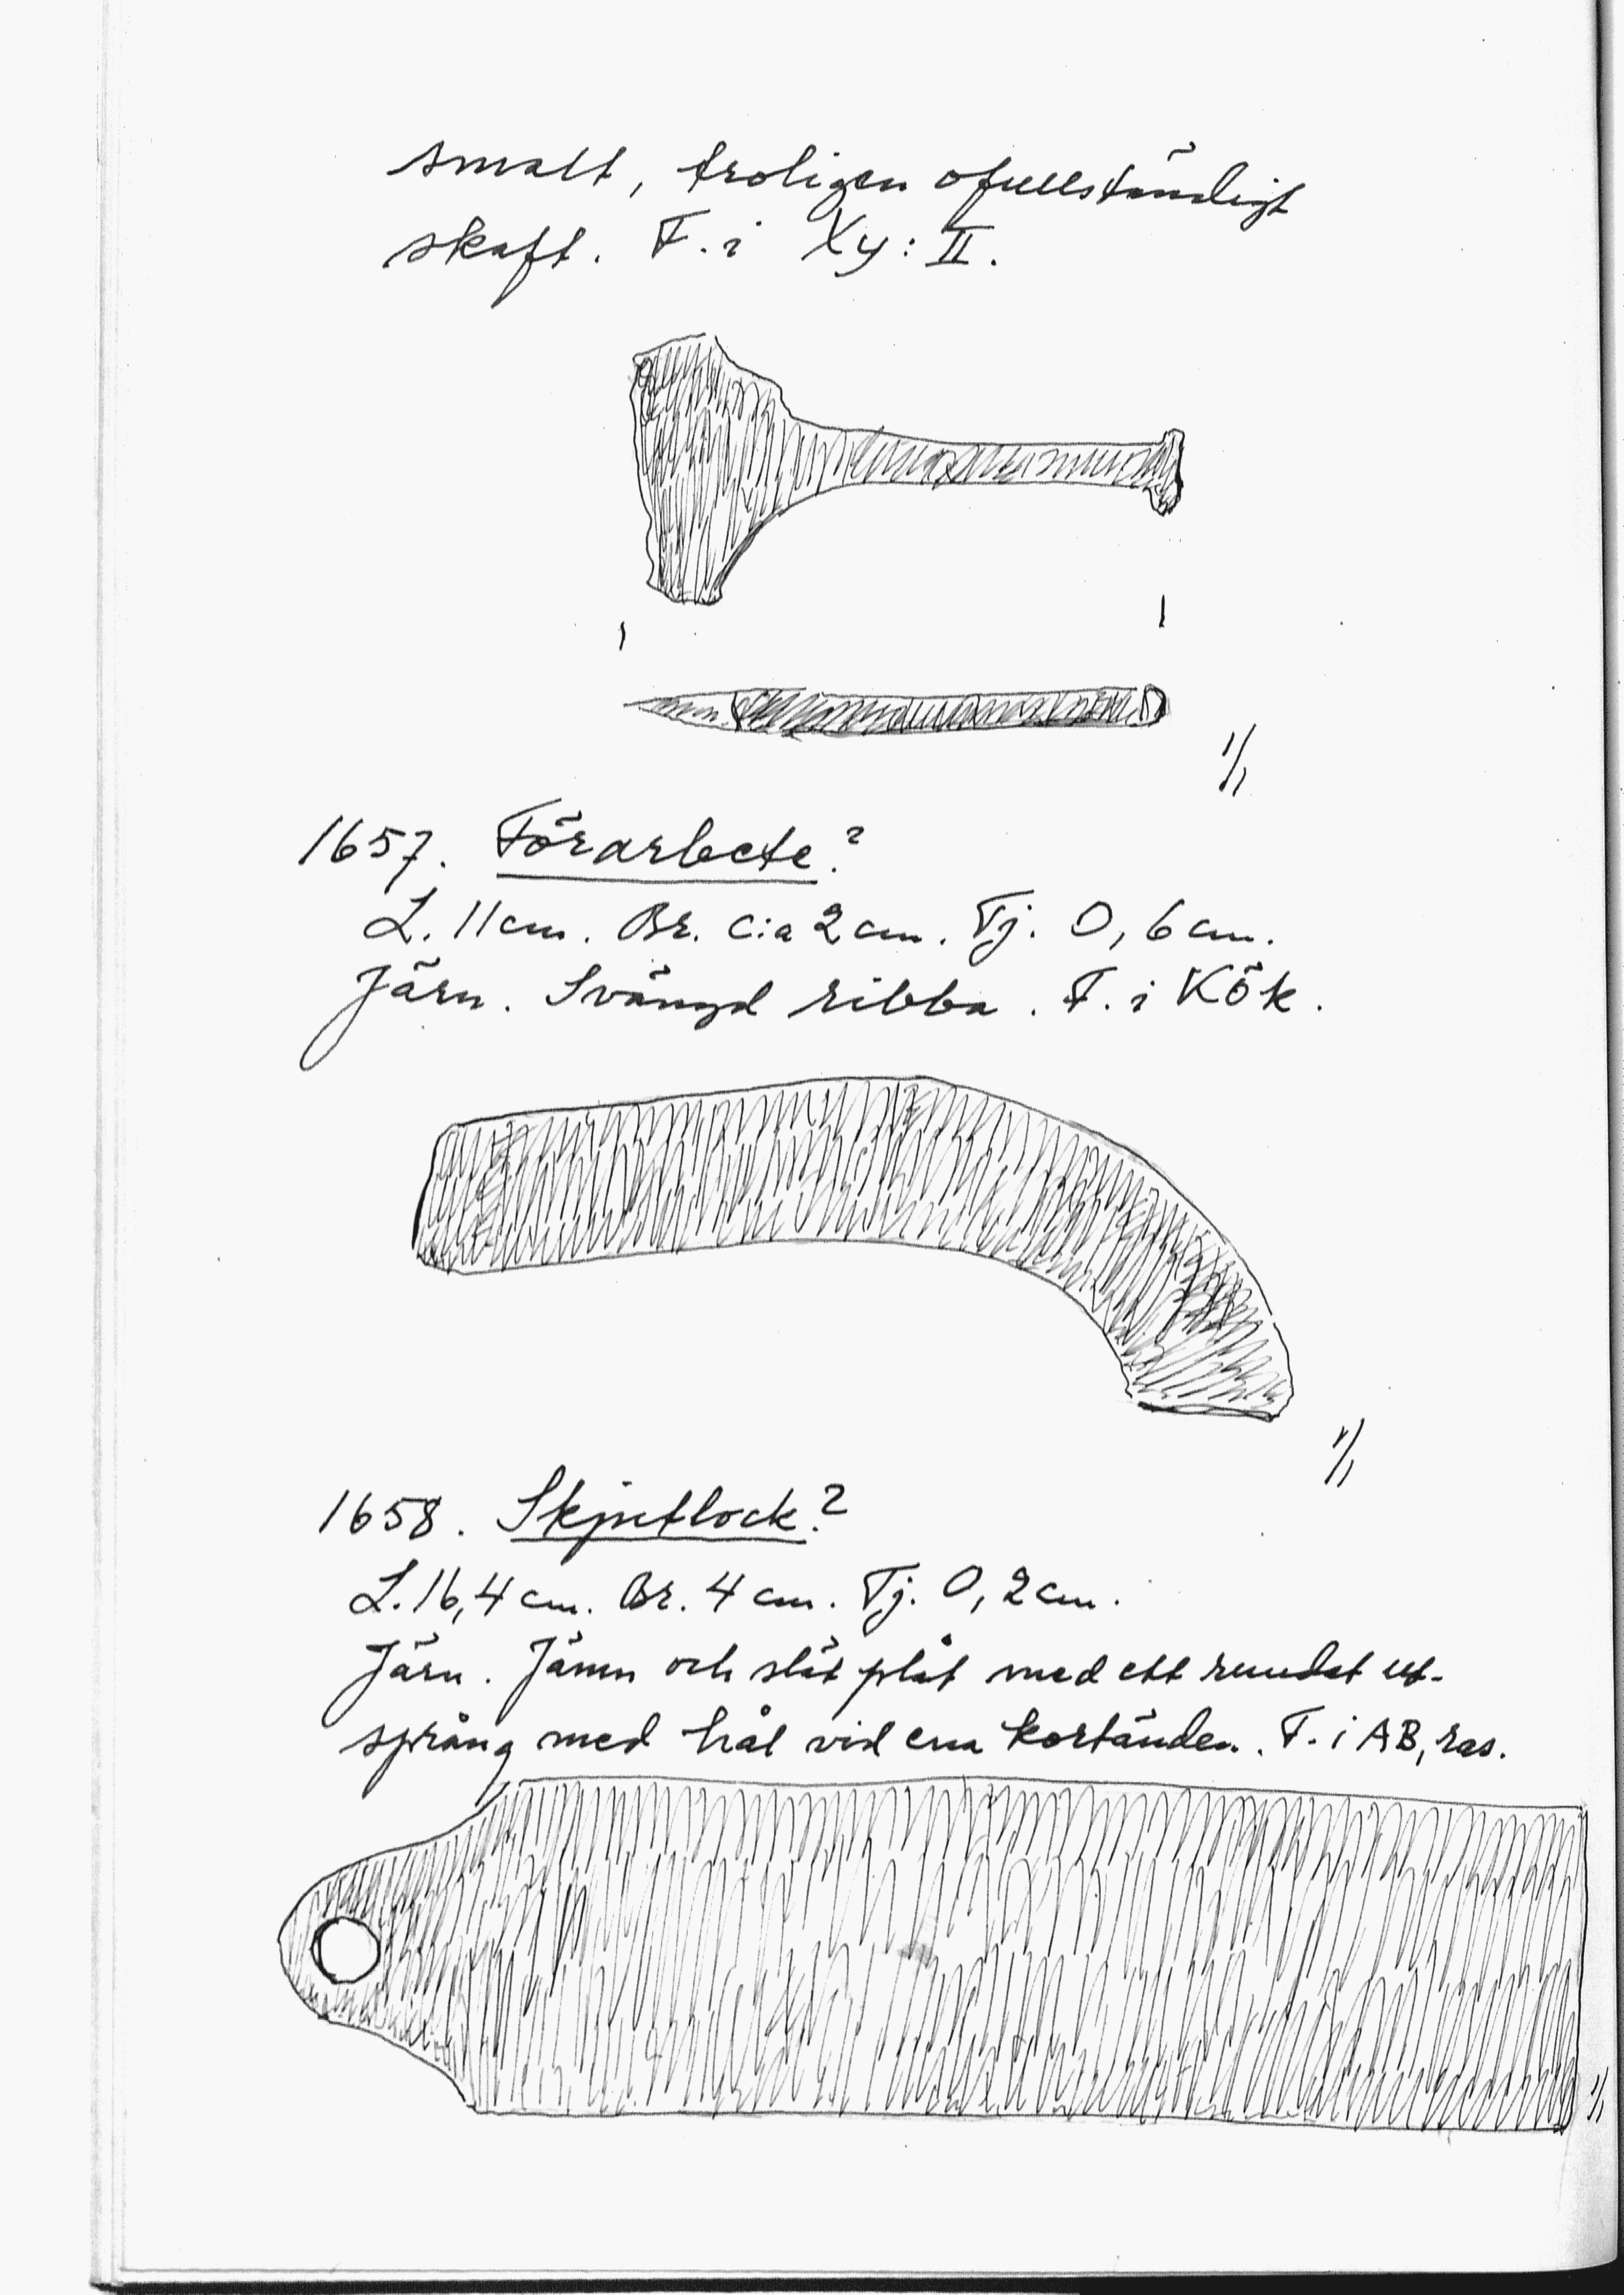 smalt, troligen ofullständigt
skaft. F. i Xy: II.
1/1
1657. Förarbete?
L. 11 cm. Br. c:a 2 cm. Tj. 0,6 cm.
Järn. Svängd ribba. F. i Kök.
1/1
1658. Skjutlock?
L. 16,4 cm. Br. 4 cm. Tj. 0,2 cm.
Järn. Jämn och slät plåt med ett rundat ut-
språng med hål vid ena kortänden. F. i AB, ras.
1/1